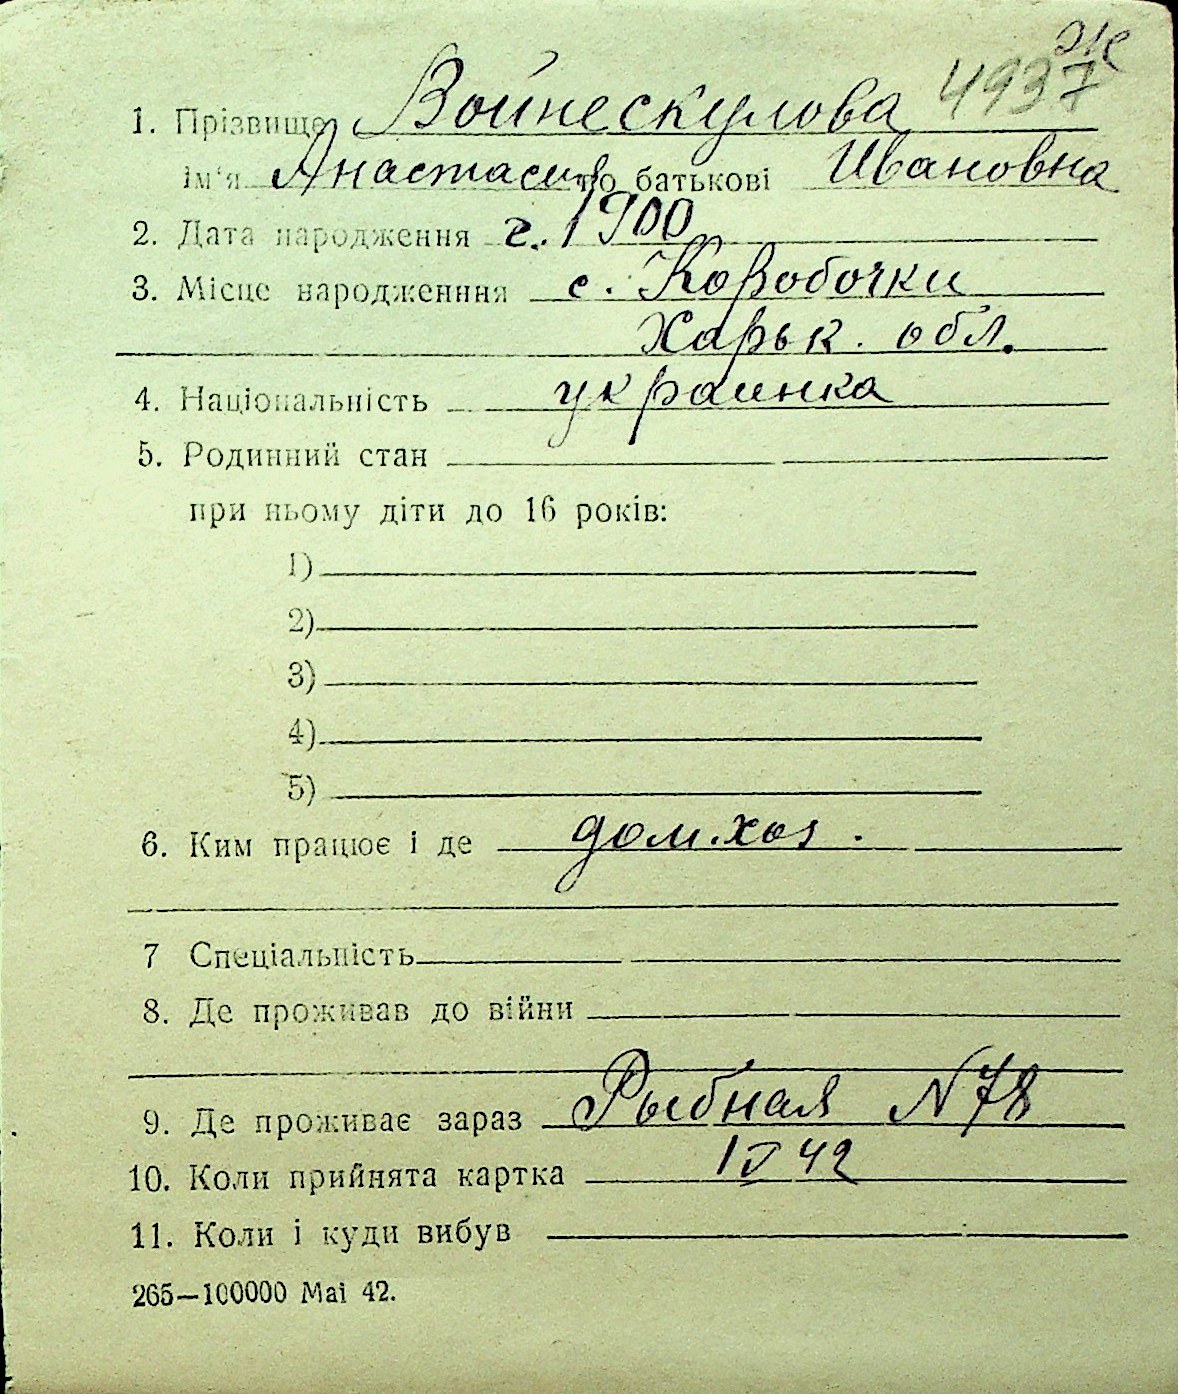 Ж
4937
1. Прізвище Войнескулова
ім'я Анастасия по батькові Ивановна
2. Дата народження г. 1900
3. Місце народженння с. Коробочки
Харьк. обл.
4. Національність украинка
5. Родинний стан
при ньому діти до 16 років:
1)
2)
3)
4)
5)
6. Ким працює і де дом. хоз.
7 Спеціальність
8. Де проживав до війни
9. Де проживає зараз Рыбная N 78
10. Коли прийнята картка 1 V 42
11. Коли і куди вибув
265—100000 Mai 42.